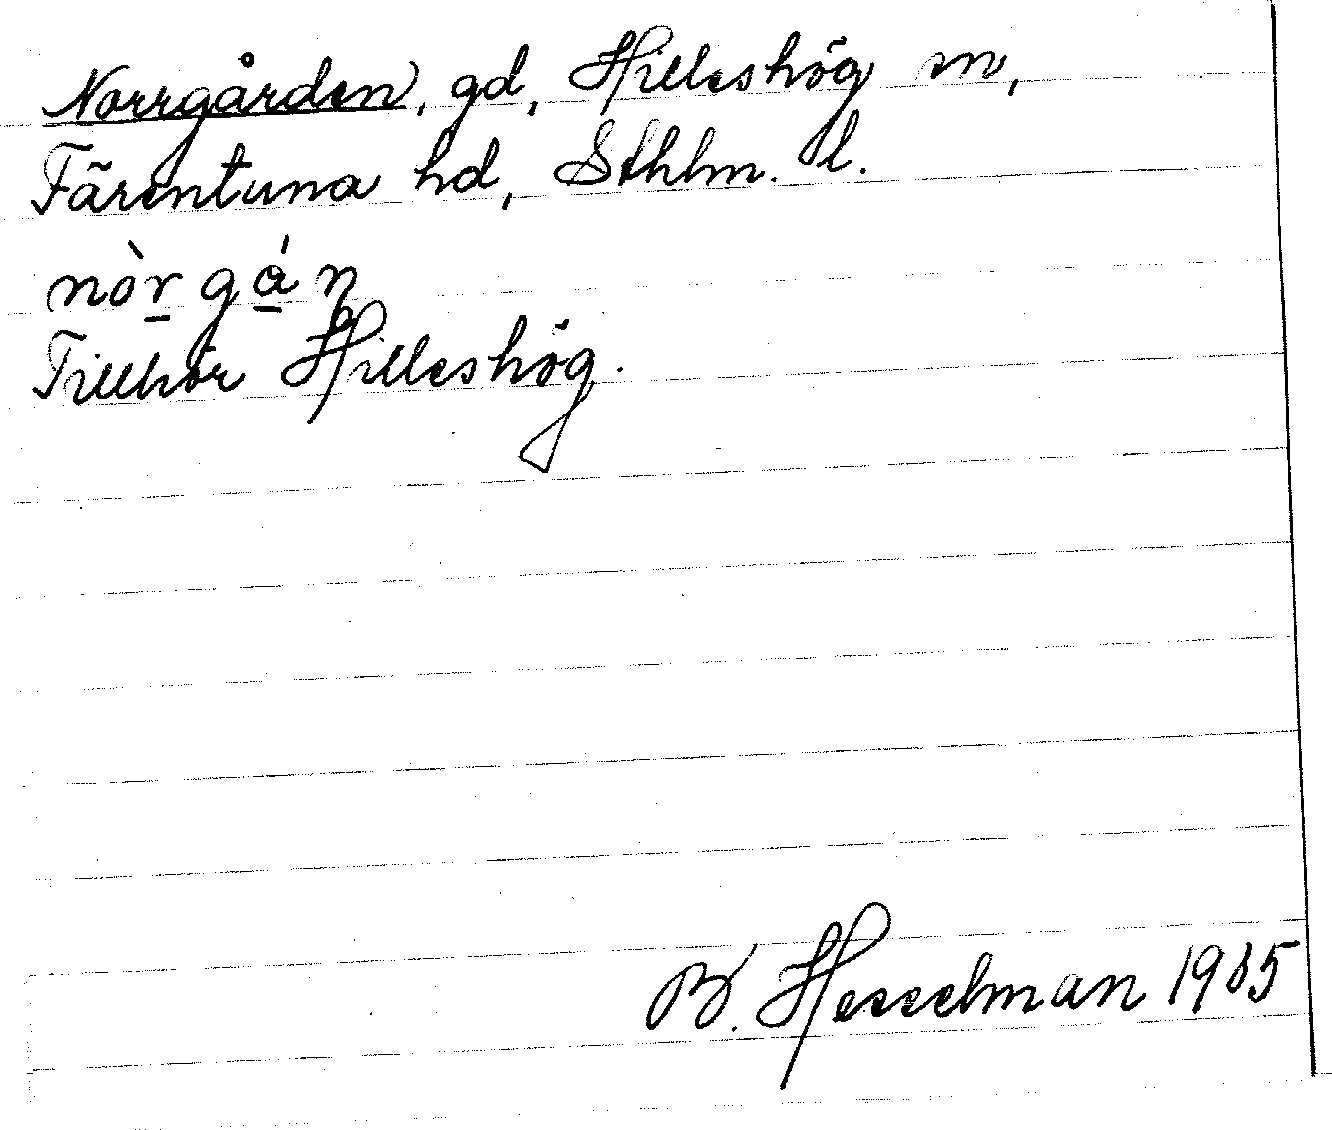 Norrgården, gd, Hilleshög sn,
Färentuna hd, Sthlm. l.
nòr̲ gá̲ n̥
Tillhör Hilleshög.
B. Hesselman 1935